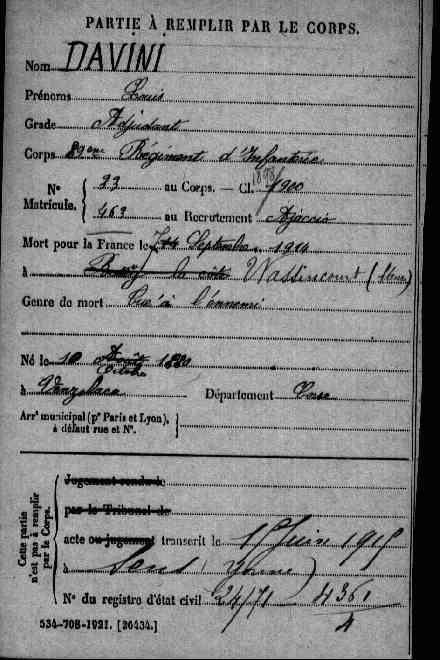 PARTIE À REMPLIR PAR LE CORPS.
Nom DAVINI
Prénoms Louis
Grade Adjudant
Corps 89eme Régiment d'Infanterie
N° Matricule. 23 au Corps. — Cl. 1898/1900
463 au Recrutement Ajaccio
Mort pour la France le Septembre 1914
à Vassincourt (Meuse)
Genre de mort Tué à l'ennemi
Né le 10 Août Octobre 1880
à Département Corse
Arrt municipal (pr Paris et Lyon), à défaut rue et N°.
Cette partie n'est pas à remplir par le Corps.
Jugement rendu le
par le Tribunal de
acte ou jugement transcrit le 15 Juin 1915
à Sens (Yonne)
N° du registre d'état civil 24/71 436
534-708-1921. [26434.]